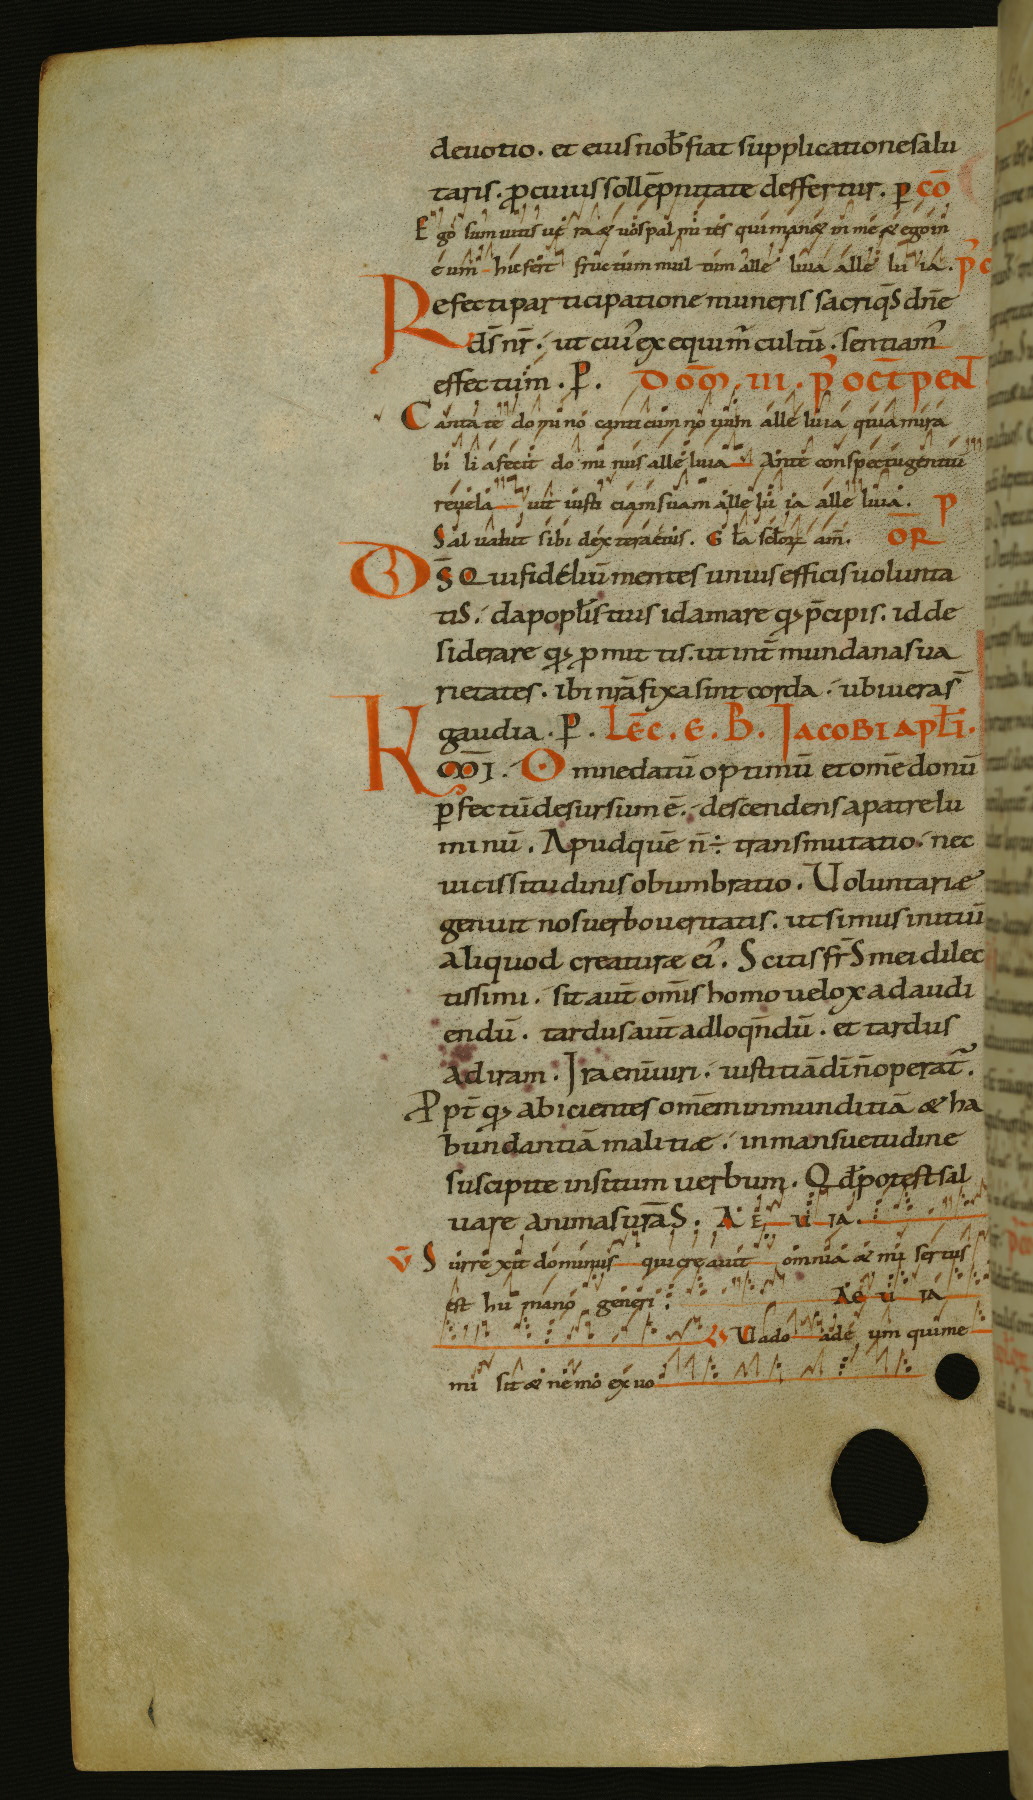 deuotio. et eius nob̄ fiat supplicatione salu
taris. ꝓ cuius sollēpnitate deffertur. ꝑ cō
Ego sum uitis uera & uos palmites qui man& in me & ego in
eum hic fert fructum multum alleluia alleluia. p̄ c
Refecti participatione muneris sacri q̄s dn̄e
ds̄ nr̄. ut cui᾽ exequim̄ cultū. sentiam᾽
effectum. P. Dom̄. III. p᾽ oct̄ pent̄
Cantate domino canticum nouum alleluia quia mira
bilia fecit dominus alleluia Ante conspectū gentiū
reuelauit iusticiam suam alleluia alleluia. P
Saluabit sibi dextera eius. Gła scłorꝝ am̄. OR̄
Ds̄ Qui fidéliū mentes unius efficis uolunta
tis. da popłis tuis id amare qđ p̄cipis. id de
siderare qđ ꝓmittis. ut int̄ mundanas ua
rietates. ibi nr̄a fixa sint corda. ubi uera s̄
gaudia. P. Lēc. E. B. Iacobi apłi.
K m̄i. Omne datū optimū et om̄e donū
ꝑfectū desursum ē. descendens a patre lu
minū. Apud quē n̄ ÷ transmutatio. nec
uicissitudinis obumbratio. Uoluntariæ
genuit nos uerbo ueritatis. ut simus initiū
aliquod creaturæ ei᾽. Scitis fr̄s mei dilec
tissimi. sit aut̄ om̄is homo uelox ad audi
endū. tardus aut̄ ad loqn̄dū. et tardus
ad iram. Ira enī uiri. iustitiā dī n̄ operat̄.
Ppt̄ qđ abicientes om̄em inmunditiā & ha
bundantiā malitiæ. in mansuetudine
suscipite insitum uerbum. Qđ potest sal
uare animas ur̄as. A E U IA.
V̄ Surrexit dominus qui creauit omnia & misertus
est humano generi. AE U IA
Uado ad eum qui me
misit & nemo ex uo